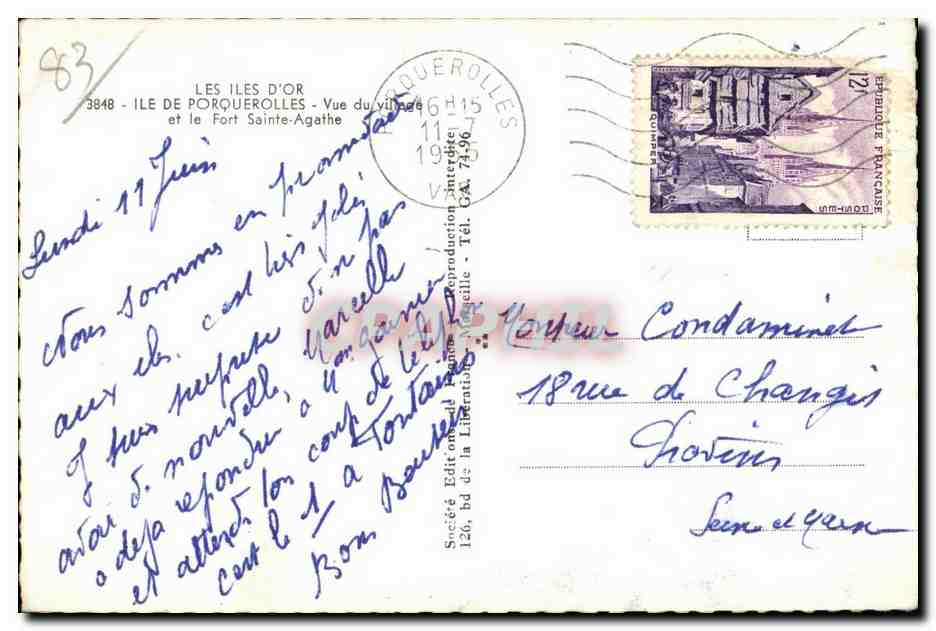 83
LES ILES D'OR
3848 - ILE DE PORQUEROLLES - Vue du village
et le Fort Sainte-Agathe
Lundi 11 Juin
Nous sommes en promenade
aux iles. c'est très joli
J suis surprise d'n pas
avoir d. nouvelles, Marcelle
a deja repondu a
et attends ton coup de teleph
c'est le 1 a Fontaines
Bons Baisers
Société Editions de France Reproduction interdite
126, bd de la Libération - Marseille - Tél. GA. 74-96
PORQUEROLLES
16H15
11-7
VAR
REPUBLIQUE FRANÇAISE
12F
POSTES
QUIMPER
Monsieur Condaminet
18 rue de Changis
Provins
Seine et Marne